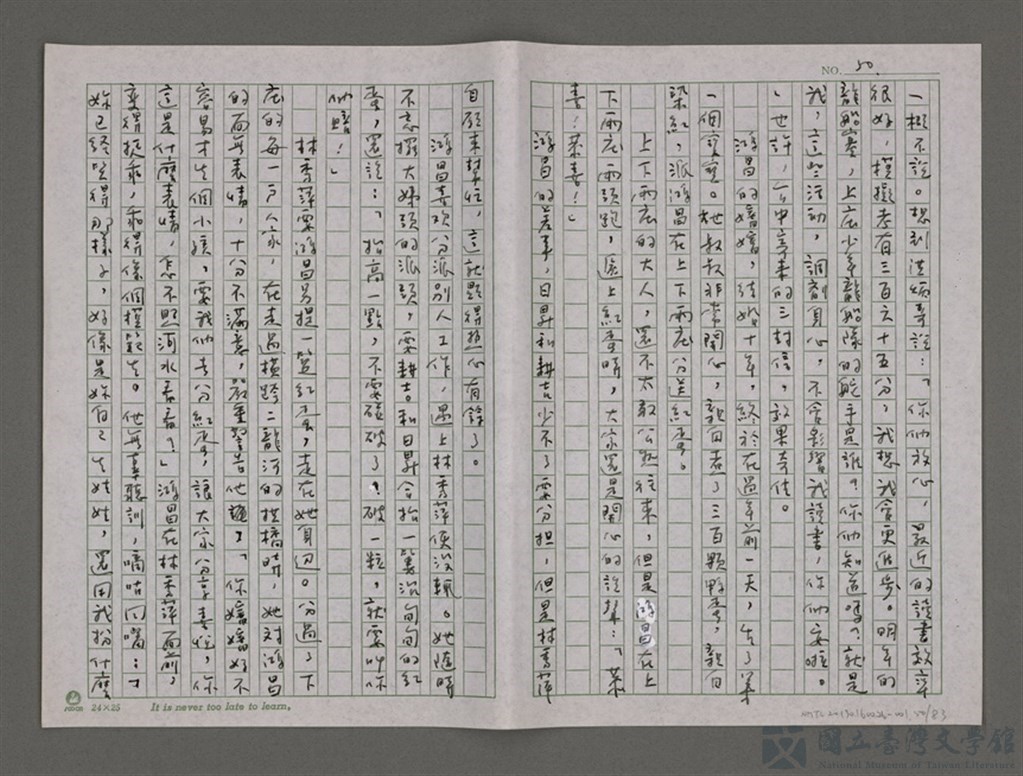 NO. 50.
一概不談。想到洪頌壽說:「你們放心,最近的讀書效率
很好,模擬考有三百六十五分,我想我會更進步。明年的
龍船賽,上庄少年龍船隊的舵手是誰?你們知道嗎?就是
我,這些活動,調劑身心,不會影響我讀書,你們安啦。
」也許,台中寄來的三封信,效果奇佳。
鴻昌的嬸嬸,結婚十年,終於在過年前一天,生了第
一個寶寶。他叔叔非常開心,親自煮了三百顆鴨蛋,親自
染紅,派鴻昌在上下兩庄分送紅蛋。
上下兩庄的大人,還不太敢公然往來,但是鴻昌在上
下兩庄兩頭跑,送上紅蛋時,大家還是開心的說聲:「恭
喜!恭喜!」
鴻昌的差事,日昇和耕吉少不了要分担,但是林秀萍
自願來幫忙,這就顯得熱心有餘了。
鴻昌喜歡分派別人工作,遇上林秀萍便沒輒。她隨時
不忘擺大姊頭的派頭,要耕吉和日昇合抬一簍沉甸甸的紅
蛋,還說:「抬高一點,不要碰破了?破一粒,就要叫你
們賠!」
林秀萍要鴻昌另提一籃紅蛋,走在她身邊。分過了下
庄的每一戶人家,在走過橫跨二龍河的拱橋時,她對鴻昌
的面無表情,十分不滿意,嚴重警告他
「你嬸嬸好不
容易才生個小孩,要我們去分紅蛋,讓大家分享喜悅,你
這是什麼表情,怎不照河水看看?」鴻昌在林秀萍面前,
變得挺乖,乖得像個模範生。他無辜聽訓,嘀咕回嘴:「
妳已經笑得那樣了,好像是妳自己生娃娃,還用我扮什麼
24×25 It is never too late to learn.
國立臺灣文學館
National Museum of Taiwan Literature